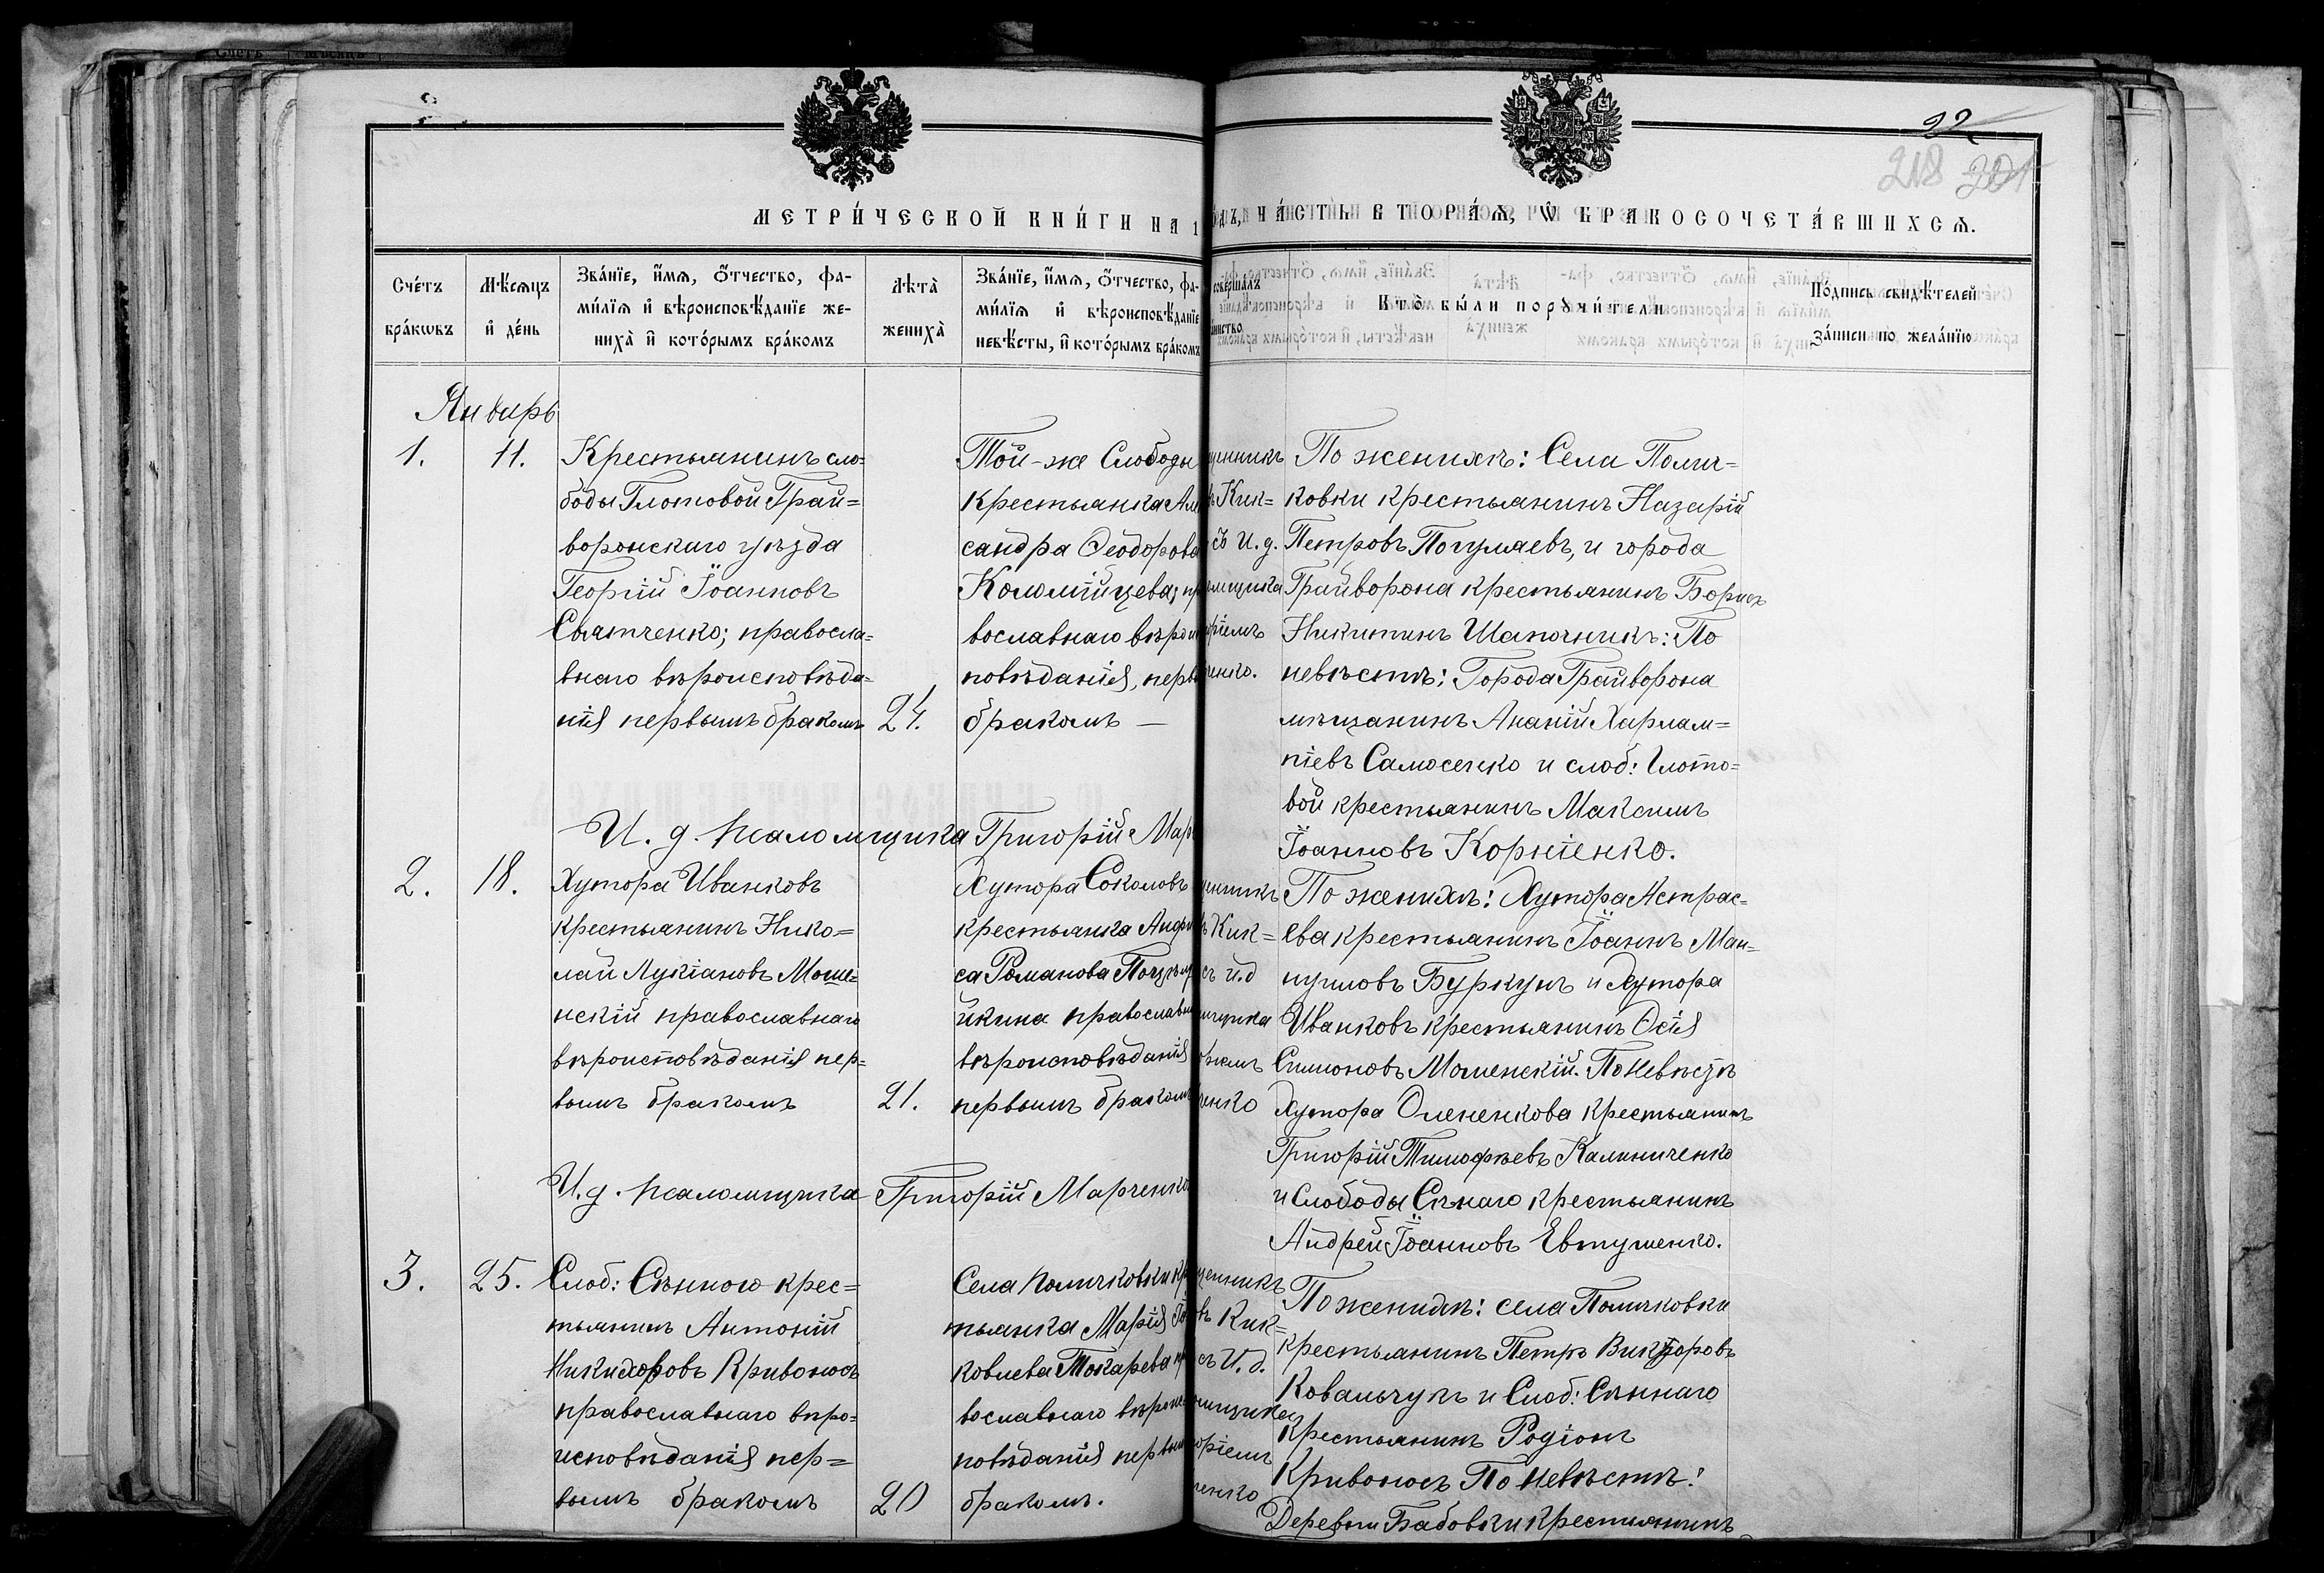 22
218 201
МЕТРИ́ЧЕСКОЙ КНИ́ГИ НА 1
ЧА́СТЬ ВТОРА́Я, Ѡ БРАКОСОЧЕТА́ВШИХСѦ.
Сче́тъ бра́кѡвъ
Мѣ́сѧцъ и҆ де́нь
Зва́нїе, и҆́мѧ, ѻ҆́тчество, фа-
ми́лїѧ и҆ вѣроисповѣ́данїе же-
ниха̀ и҆ кото́рымъ бра́комъ
Лѣта̀ жениха̀
Зва́нїе, и҆́мѧ, ѻ҆́тчество, фа-
ми́лїѧ и҆ вѣроисповѣ́данїе
невѣ́сты, и҆ кото́рымъ бра́комъ
соверша́лъ
Кто̀ бы́ли порꙋчи́тели
По́дпись свидѣ́телей
За́писи по жела́нїю
Январь
1. 11.
Крестьянинъ сло=
боды Глотовой Грай=
воронскаго уѣзда
Георгій Іоанновъ
Святченко; правосла=
внаго вѣроисповѣда=
нія первымъ бракомъ
24.
Той-же Слободы
крестьянка Але
сандра Ѳеодорова
Коломійцева; пр
вославнаго вѣрои
повѣданія, перв
бракомъ —
щенникъ
Кик=
съ И. д.
ломщика
ріемъ
ченко.
По женихѣ: Села Полич=
ковки крестьянинъ Назарій
Петровъ Погуляевъ, и города
Грайворона крестьянинъ Борисъ
Никитинъ Шапочникъ: По
невѣстѣ: Города Грайворона
мѣщанинъ Ананій Харлам=
піевъ Самосенко и слоб: Глото=
вой крестьянинъ Максимъ
Іоанновъ Корніенко.
И. д. псаломщика Григорій Мар
2. 18.
Хутора Иванковъ
крестьянинъ Нико=
лай Лукіановъ Моше=
нскій православнаго
вѣроисповѣданія пер=
вымъ бракомъ
21.
Хутора Соколовъ
крестьянка Анфи
са Романова
йкина православн
вѣроисповѣданія
первымъ бракомъ
щенникъ
Кик=
съ и.д
ломщика
ченко
По женихѣ: Хутора
ева крестьянинъ Іоаннъ Ман=
уиловъ Буркунъ и Хутора
Иванковъ крестьянинъ Осія
Симоновъ Мошенскій. По Невѣстѣ
Хутора Олененкова крестьянинъ
Григорій Тимофѣевъ Калиниченко
и Слободы Сѣнаго крестьянинъ
Андрей Іоанновъ Евтушенко.
И. д. псаломщика Григорій Марченко
3. 25.
Слоб: Сѣнного крес=
тьянинъ Антоній
Никифоровъ Кривоносъ
православнаго вѣро=
исповѣданія пер=
вымъ бракомъ
20
Села Поличковки кр
тьянка Марія
ковлева Токарева пр
вославнаго вѣроис
повѣданія первым
бракомъ.
щенникъ
въ Кик=
съ И. д.
ломщика
горіемъ
ченко
По женихѣ: села Поличковки
крестьянинъ Петръ Викторовъ
Ковальчукъ и Слоб: Сѣннаго
Крестьянинъ Родіонъ
Кривоносъ По Невѣстѣ:
Деревни Бабовки крестьянинъ